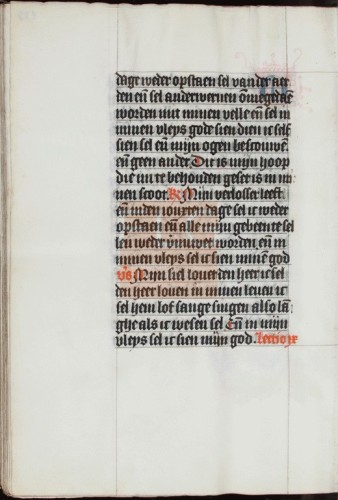 dage weder opstaen sel van der aer
den en̄ sel anderwerven om̄egedae
worden mit minen velle en̄ sel in
minen vleys gode sien dien ic self
sien sel en̄ mijn ogen bescouwē
en̄ geen ander. Dit is mijn hoop
die mi te behouden geset is in mi
nen scoot. R̷ Mijn verlosser leeft
en̄ inden ioncxten dage sel ic weder
opstaen en̄ alle mijn gebeente sel
len weder v̄nuwet worden. en̄ in
minen vleys sel ic sien minē god
vs Mijn siel lovet den heer ic sel
den heer loven in minen leven ic
sel hem lof sange singen also lā
ghe als ic wesen sel En̄ in mijn
vleys sel ic sien mijn god. Lectio ix